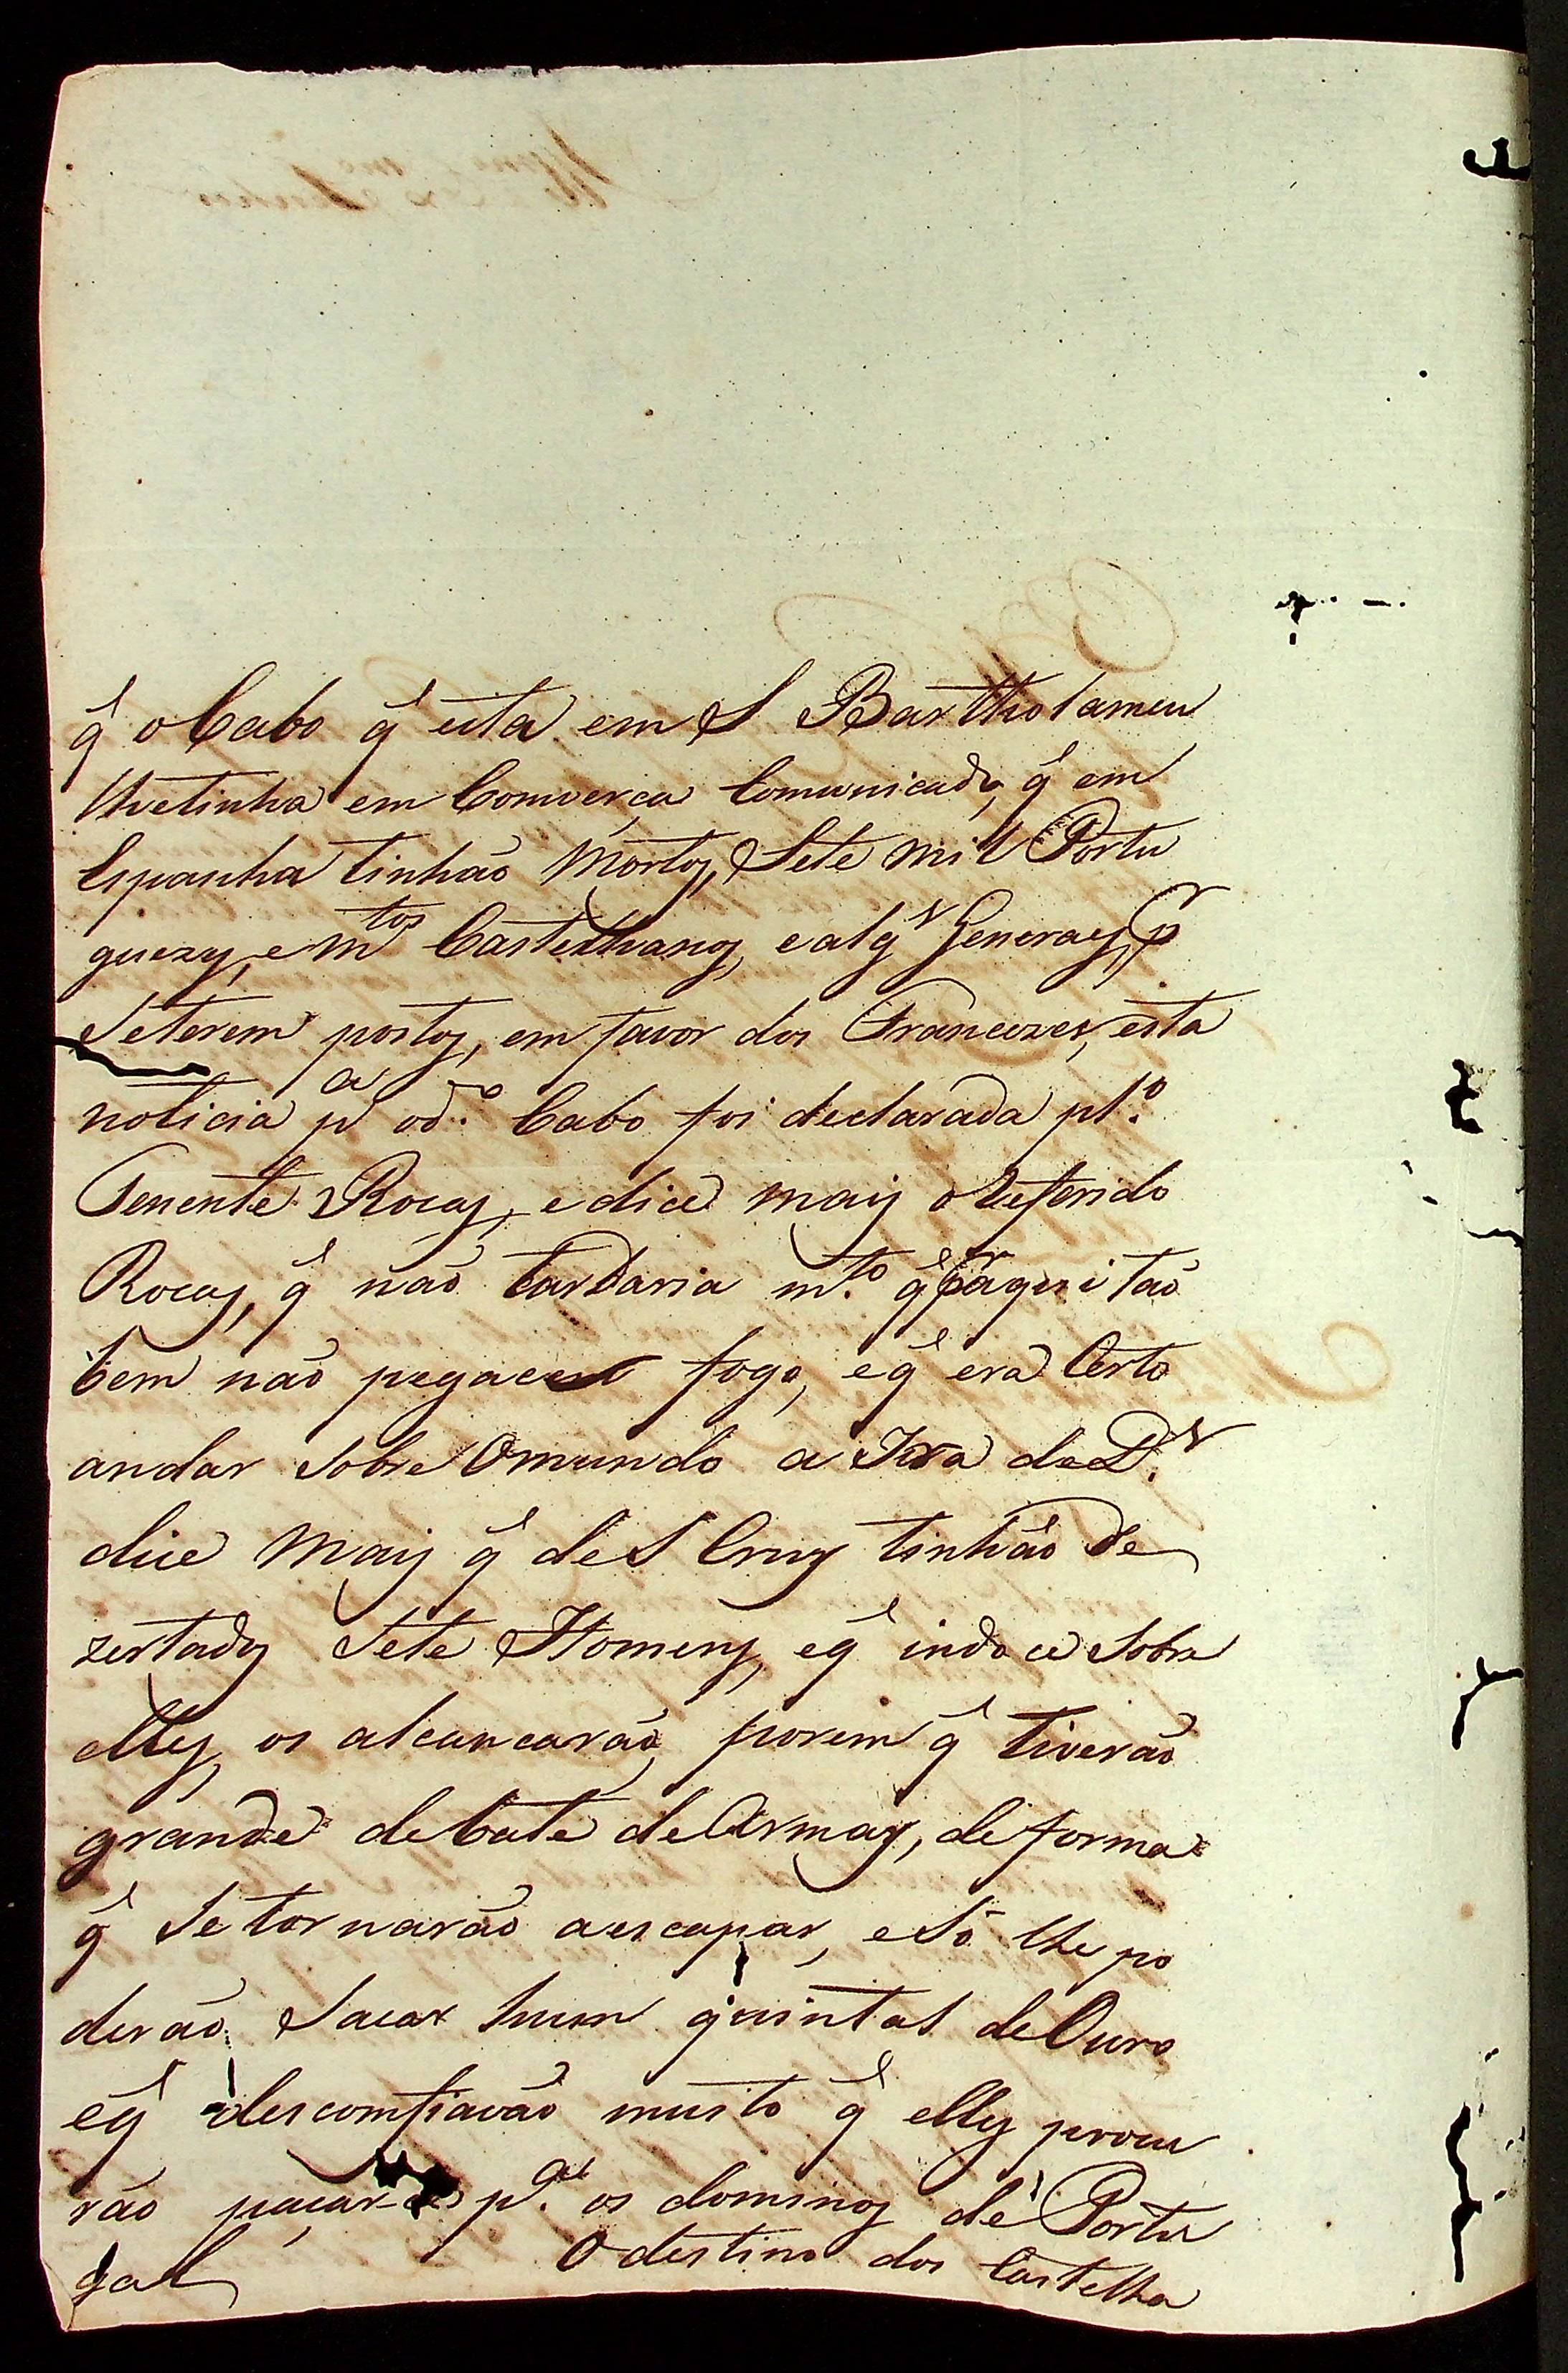 q̃ o Cabo q̃ está em S Bartholameu
lhe tinha em Comverça Comunicado, q̃ em
Espanha tinhão Mortos, Sete mil Portu
guezes, e m.tos Castelhanos, e alg.s Generaes, p.r
Se terem postos, em favor dos Francezes, esta
noticia p.a o d.o Cabo foi declarada p.lo
Tenente Rocas, e dice mais o Referido
Rocas, q̃ não tardaria m.to q̃ p.r aqui tão
bem não pegace fogo, e q̃ era Certo
andar Sobre O mundo a Ira de D.s
dice Mais q̃ de S Cruz tinhão de
zertados Sete Homens, e q̃ indo ce Sobre
elles, os alcancarão, porem q̃ tiverão
grande debate de Armas, de forma
q̃ Se tornarão a escapar, e Só lhe po
derão Sacar hum quintal de Ouro
e q̃ descomfiavão muito q̃ elles procu
rão paçar p.a os dominos de Portu
gal O destino dos Castelha